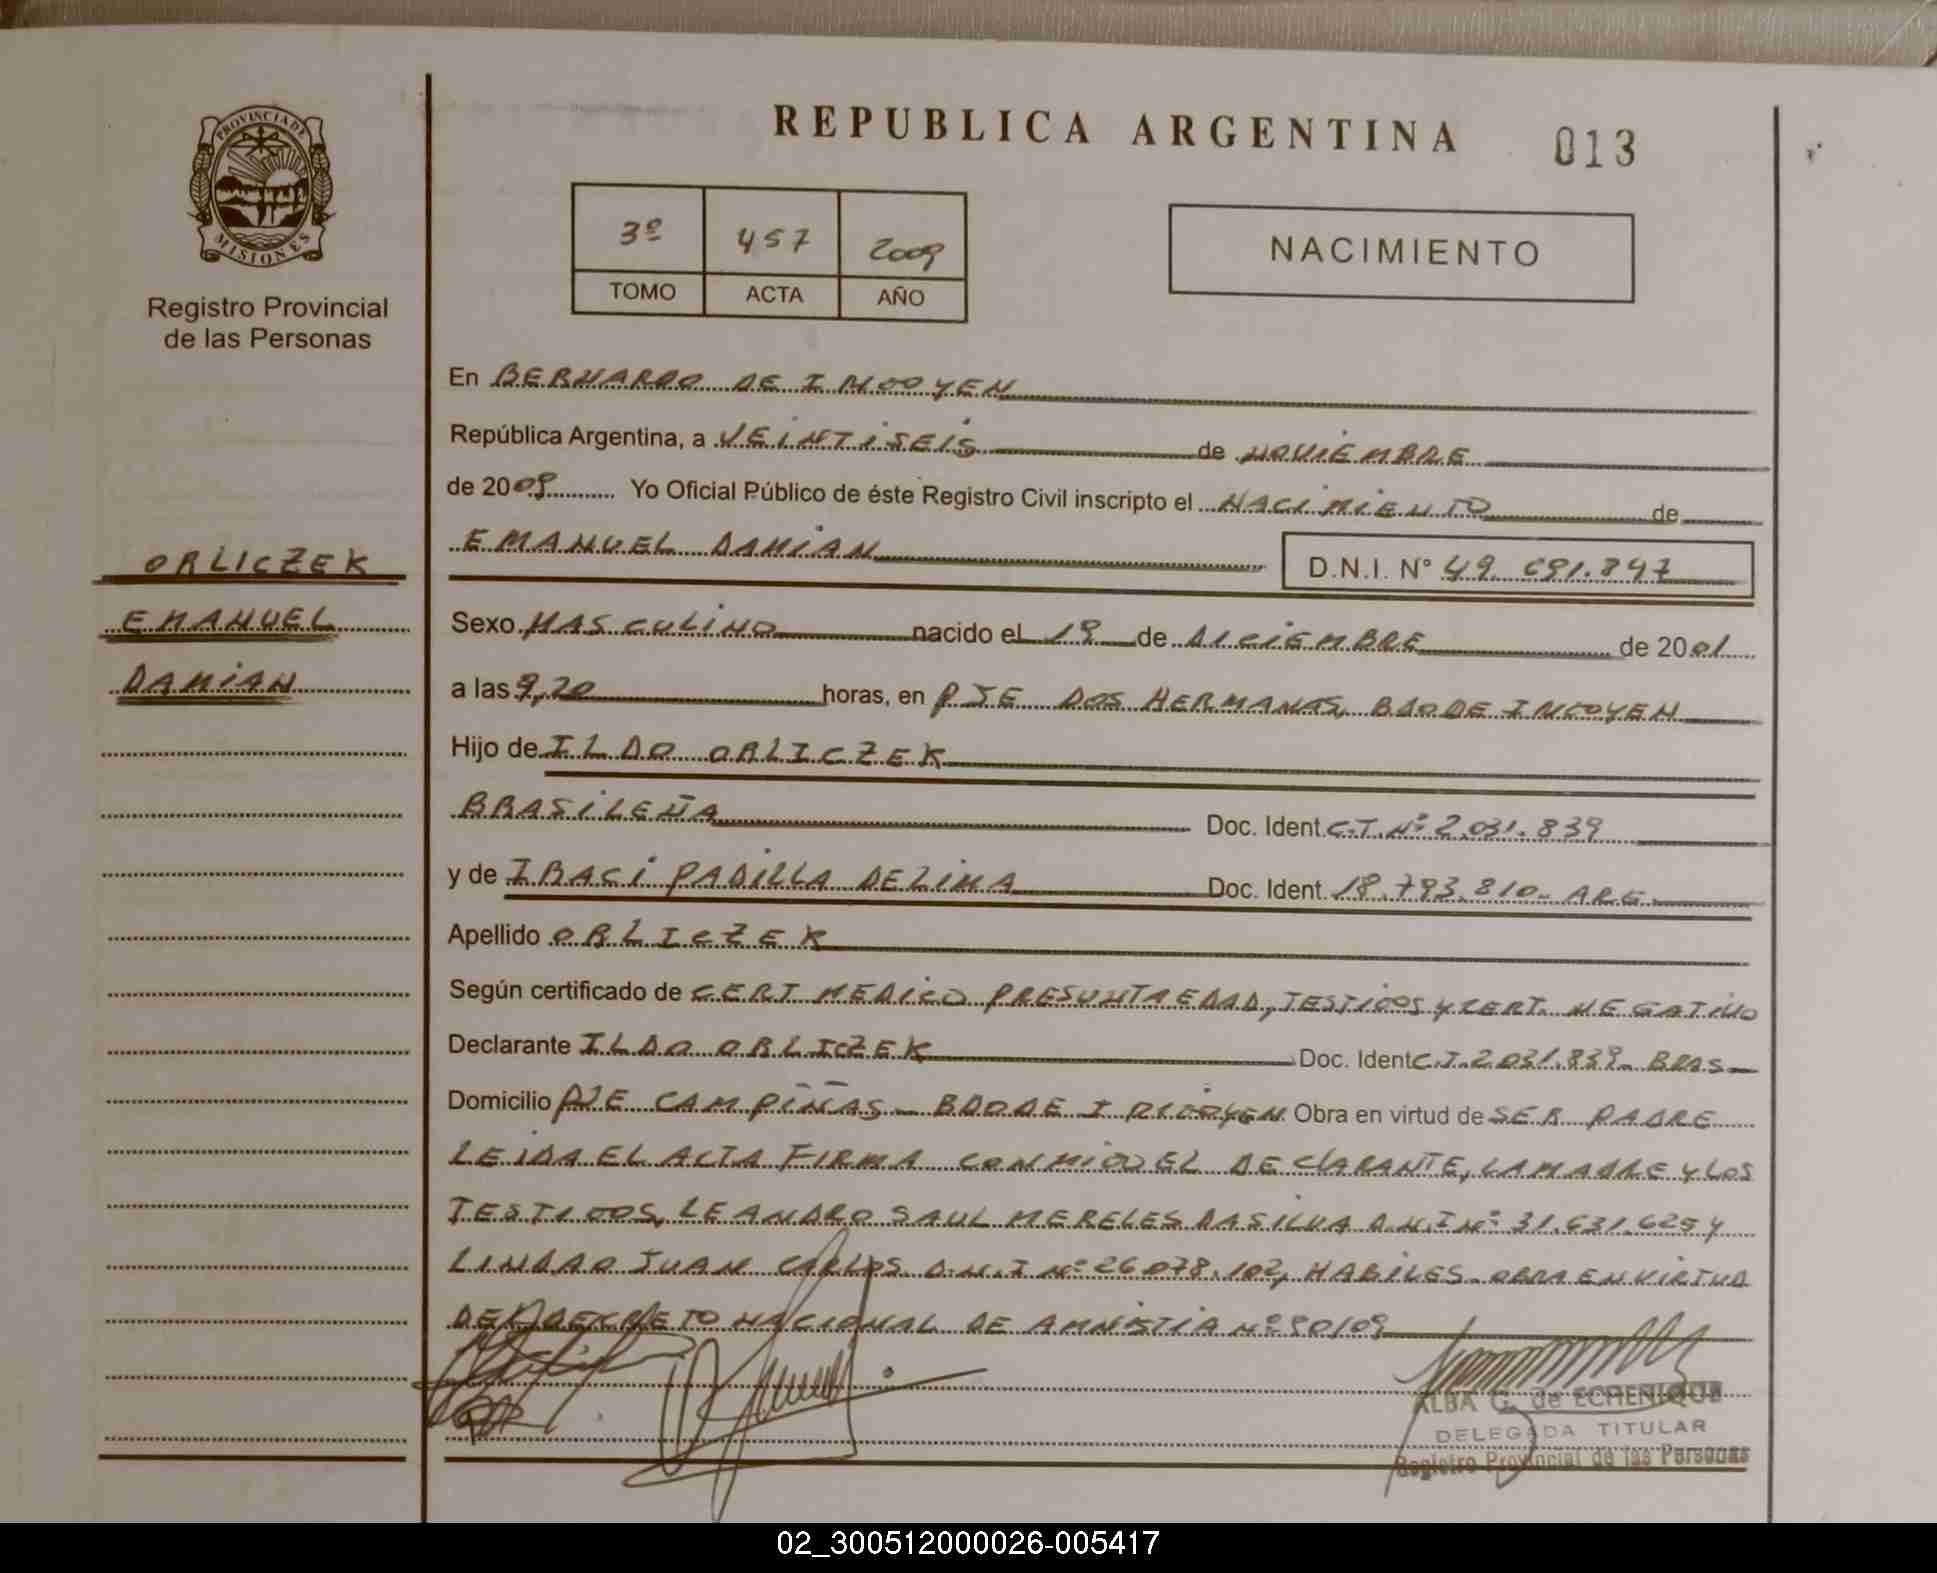 PROVINCIA DE
MISIONES
Registro Provincial
de las Personas
ORLICZEK
EMANUEL
DAMIAN
REPUBLICA ARGENTINA 013
3º 457 2009
TOMO ACTA AÑO
NACIMIENTO
En BERNARDO DE IRIGOYEN
República Argentina, a VEINTISEIS de NOVIEMBRE
de 2009 Yo Oficial Público de éste Registro Civil inscripto el NACIMIENTO de
EMANUEL DAMIAN D.N.I. N° 49.691.847
Sexo MASCULINO nacido el 19 de DICIEMBRE de 2001
a las 9,20 horas, en PJE DOS HERMANAS, BDO DE IRIGOYEN
Hijo de ILDO ORLICZEK
BRASILEÑA Doc. Ident. C.I. Nº 2.031.839
y de IRACI PADILLA DE LIMA Doc. Ident. 18.793.810- ARG.
Apellido ORLICZEK
Según certificado de CERT MEDICO PRESUNTA EDAD, TESTIGOS Y CERT. NEGATIVO
Declarante ILDO ORLICZEK Doc. Ident C.I. 2.031.839- BRAS
Domicilio PJE CAMPIÑAS - BDO DE IRIGOYEN Obra en virtud de SER PADRE
LEIDA EL ACTA FIRMA CONMIGO EL DECLARANTE, LA MADRE Y LOS
TESTIGOS, LEANDRO SAUL MERELES DA SILVA D.N.I Nº 31.631.625 Y
LINDAO JUAN CARLOS D.N.I Nº 26.078.102, HABILES. OBRA EN VIRTUD
DEL DECRETO NACIONAL DE AMNISTIA Nº 90/09
ALBA G. de ECHENIQUE
DELEGADA TITULAR
Registro Provincial de las Personas
02_300512000026-005417